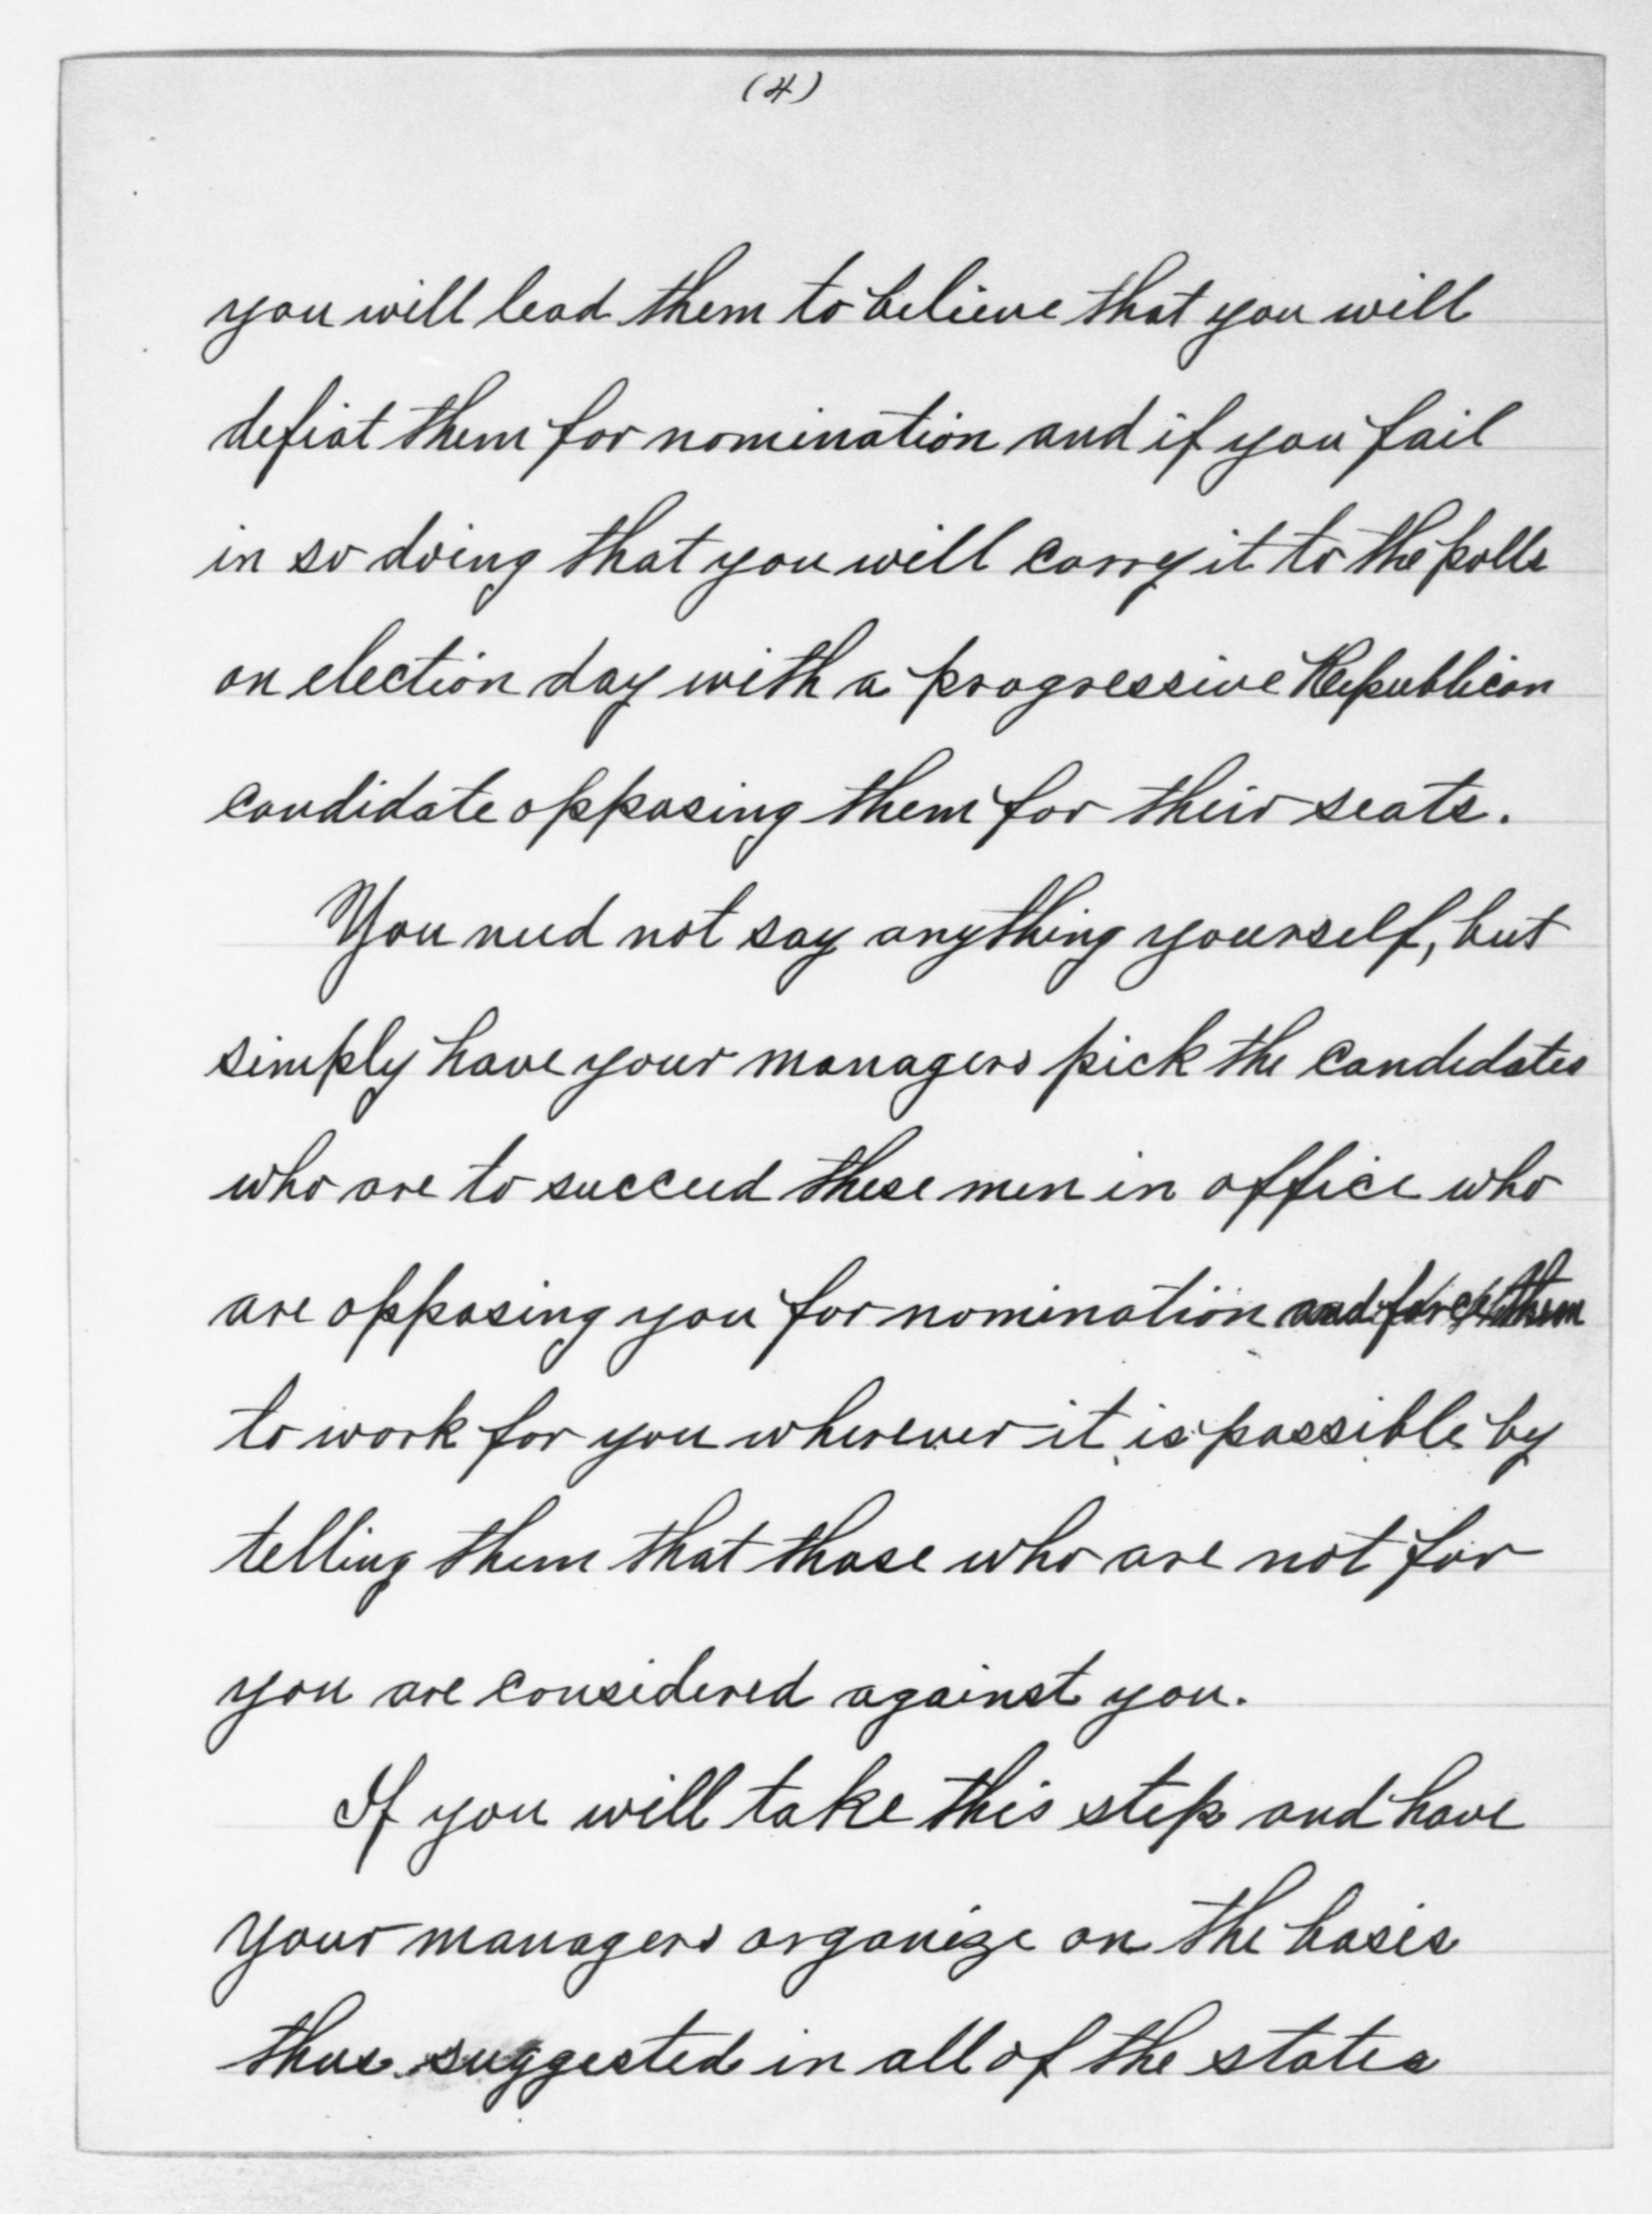 (4)
you will lead them to believe that you will
defeat them for nomination and if you fail
in so doing that you will carry it to the polls
on election day with a progressive Republican
candidate opposing them for their seats.
You need not say anything yourself, but
simply have your managers pick the candidates
who are to succeed these men in office who
are opposing you for nomination and force them
to work for you wherever it is possible by
telling them that those who are not for
you are considered against you.
If you will take this step and have
your managers organize on the basis
thus suggested in all of the states